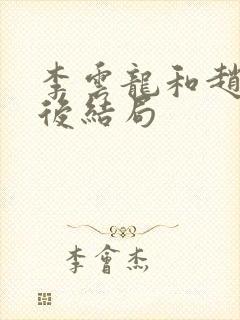 李雲龍和趙
後結局
李會杰